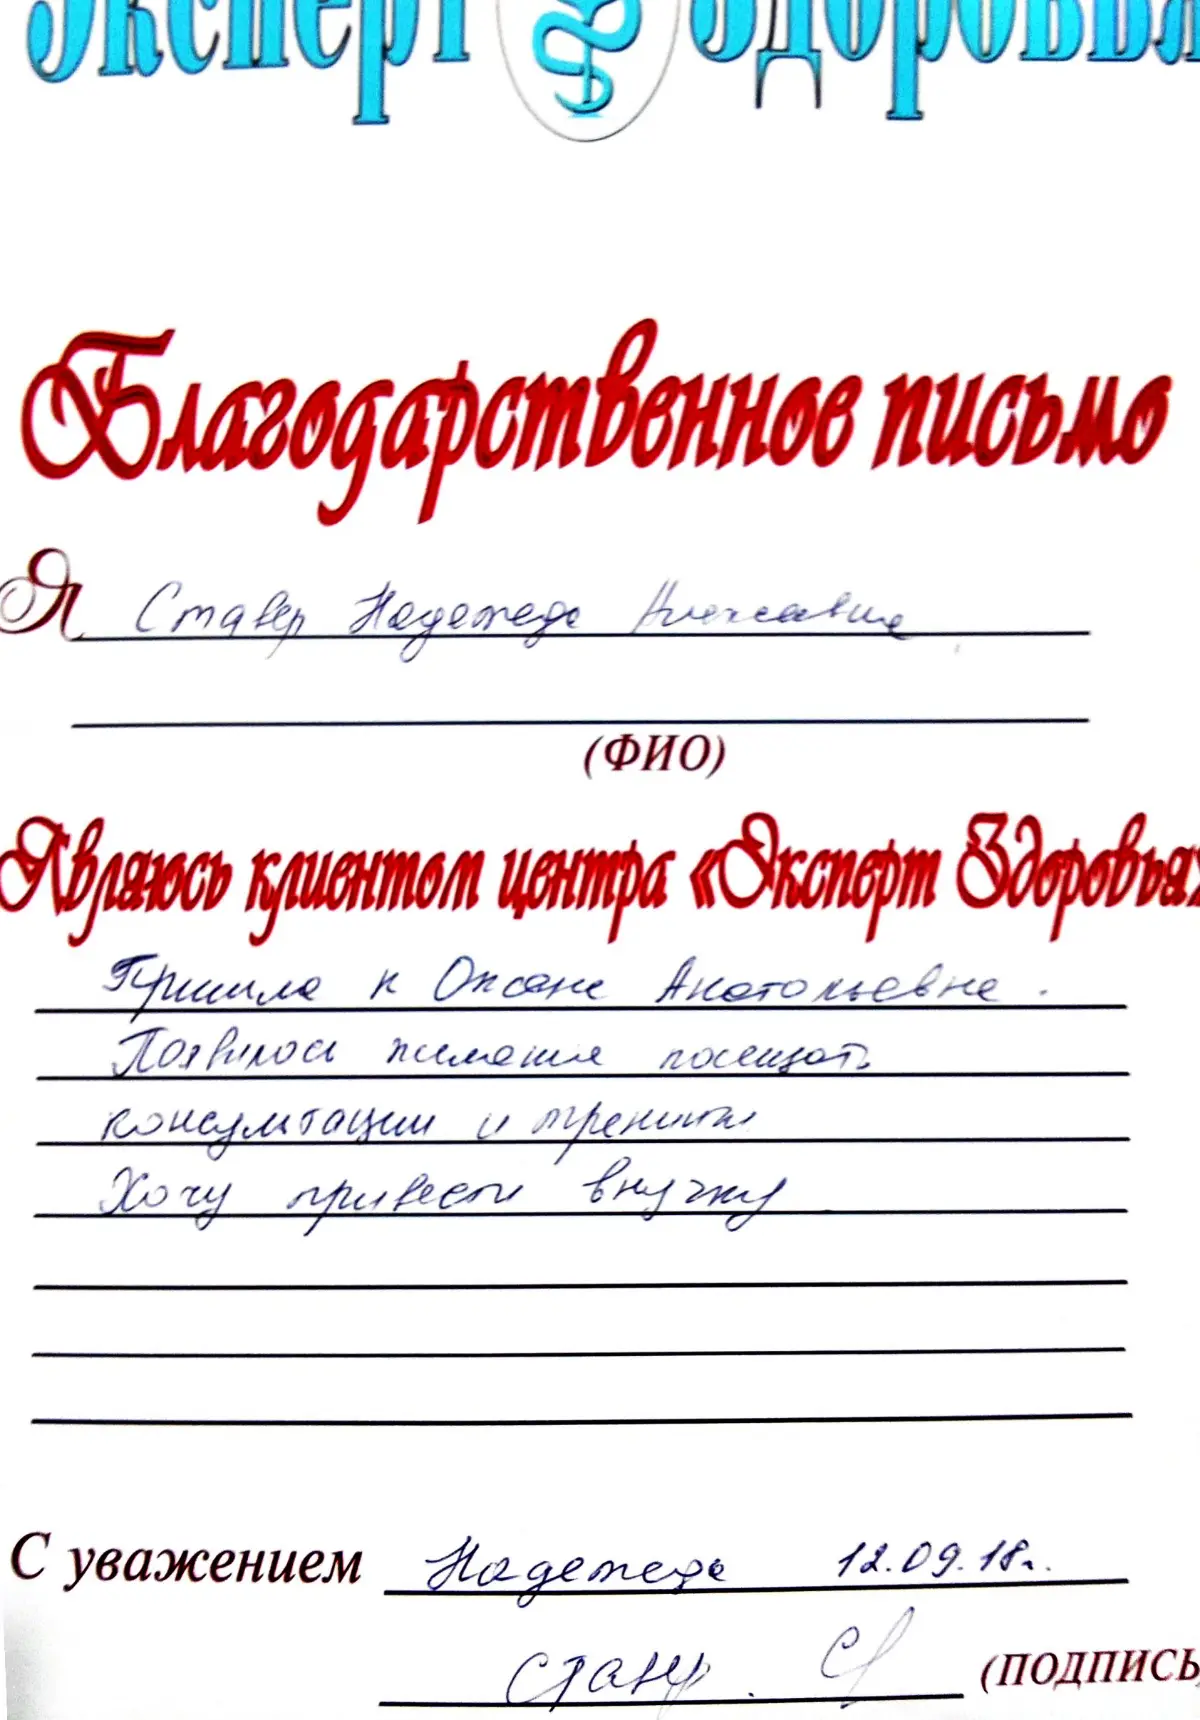 Эксперт Здоровья
Благодарственное письмо
Я Ставер Надежда
(ФИО)
Являюсь клиентом центра «Эксперт Здоровья»
Пришла к Оксане Анатольевне.
Появилось желание посещать
консультации и тренинги
Хочу привести внучку
С уважением Надежда 12.09.18г.
(ПОДПИСЬ)